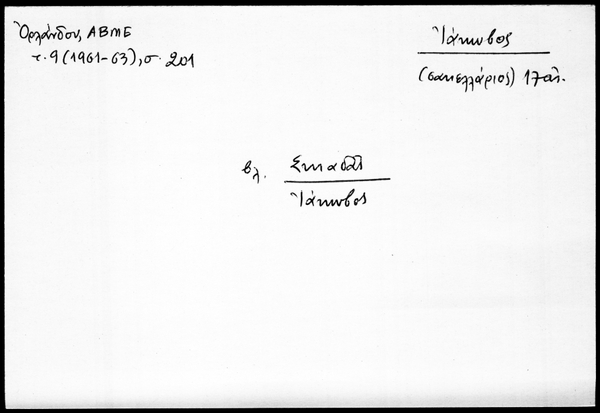 Ὀρλάνδου, ΑΒΜΕ
τ. 9 (1961-63), σ. 201
Ἰάκωβος
(σακελλάριος) 17 αἰ.
βλ.
Ἰάκωβος